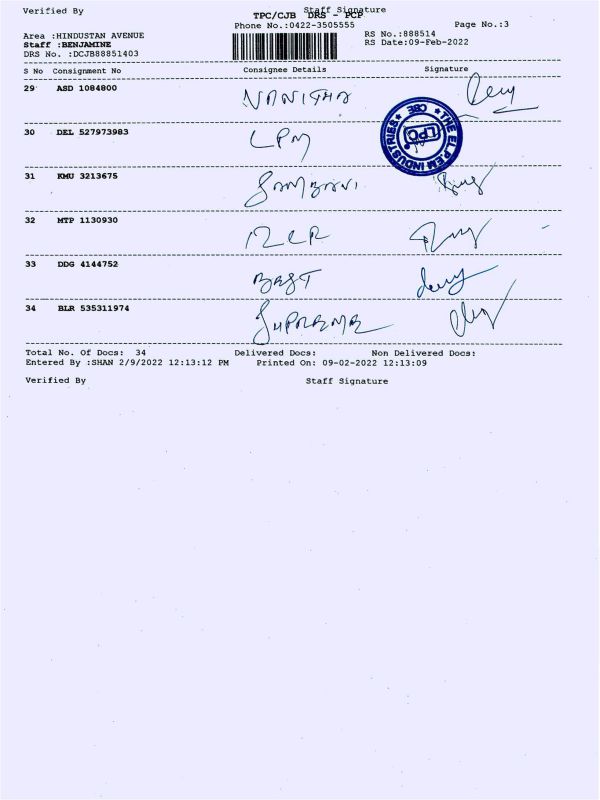 Verified By Staff Signature
TPC/CJB DRS - PCP
Phone No.:0422-3505555 Page No.:3
Area :HINDUSTAN AVENUE RS No.:888514
Staff :BENJAMINE RS Date:09-Feb-2022
DRS No. :DCJB88851403
S No Consignment No Consignee Details Signature
29 ASD 1084800 VANITHA
30 DEL 527973983 LPM
THE EL PE EM INDUSTRIES ★ CBE ★
LPC
31 KMU 3213675
32 MTP 1130930 RCR
33 DDG 4144752 BEST
34 BLR 535311974 SUPREME
Total No. Of Docs: 34 Delivered Docs: Non Delivered Docs:
Entered By :SHAN 2/9/2022 12:13:12 PM Printed On: 09-02-2022 12:13:09
Verified By Staff Signature